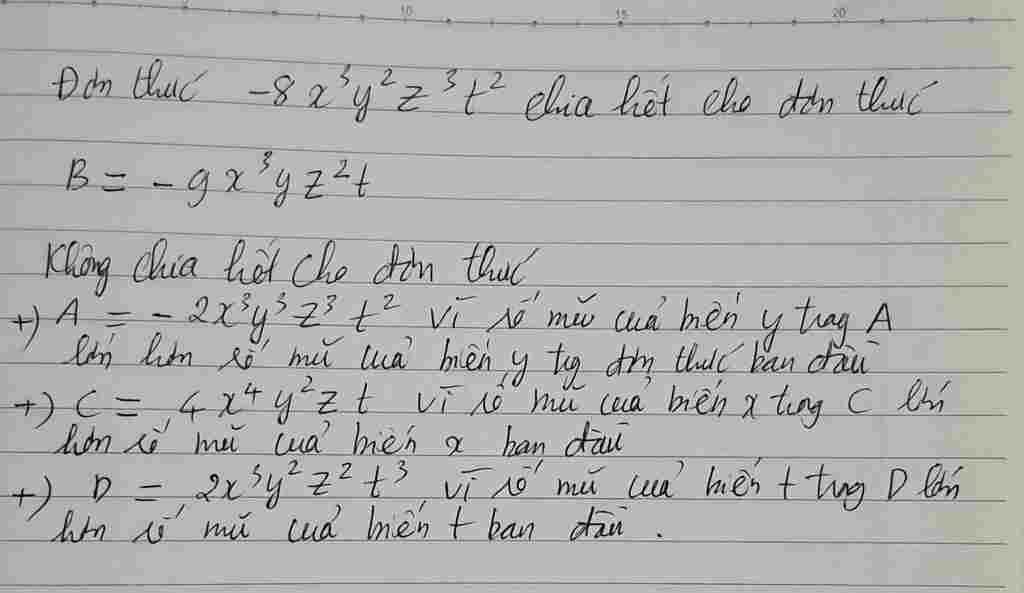 10 15 20
Đơn thức -8x³y²z³t² chia hết cho đơn thức
B = -9x³yz²t
Không chia hết cho đơn thức
+) A = -2x³y³z³t² vì số mũ của biến y trong A
lớn hơn số mũ của biến y tg đơn thức ban đầu
+) C = 4x⁴y²zt vì số mũ của biến x trong C lớn
hơn số mũ của biến x ban đầu
+) D = 2x³y²z²t³ vì số mũ của biến t trong D lớn
hơn số mũ của biến t ban đầu.